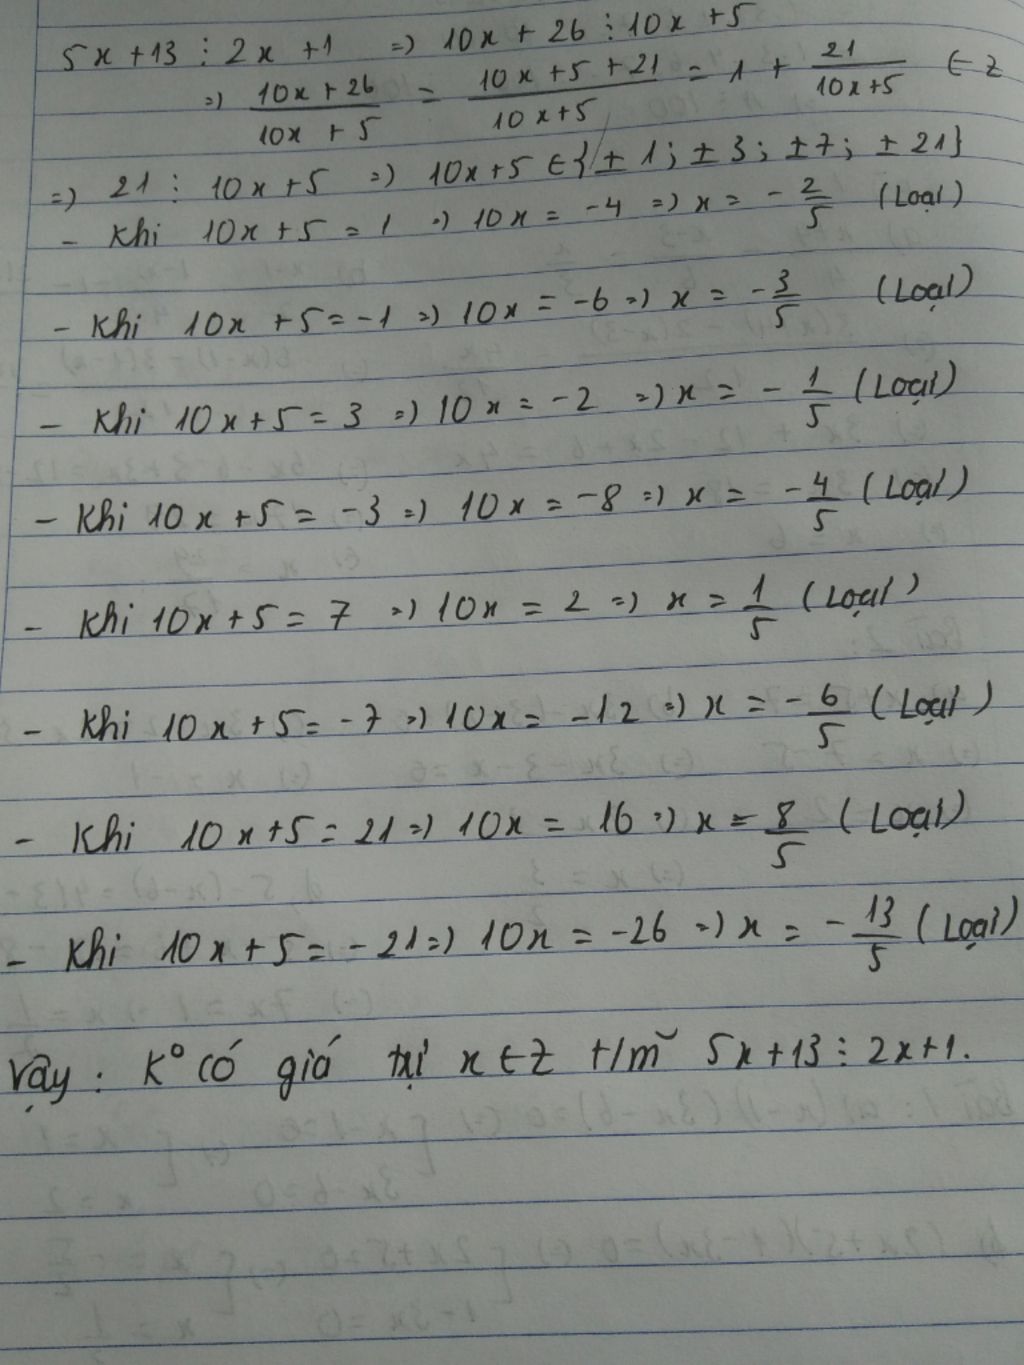 5x + 13 ⋮ 2x + 1 => 10x + 26 ⋮ 10x + 5
=> \frac{10x + 26}{10x + 5} = \frac{10x + 5 + 21}{10x + 5} = 1 + \frac{21}{10x + 5} ∈ Z
=> 21 ⋮ 10x + 5 => 10x + 5 ∈ {± 1 ; ± 3 ; ± 7 ; ± 21}
- Khi 10x + 5 = 1 => 10x = -4 => x = - \frac{2}{5} (Loại)
- Khi 10x + 5 = -1 => 10x = -6 => x = - \frac{3}{5} (Loại)
- Khi 10x + 5 = 3 => 10x = -2 => x = - \frac{1}{5} (Loại)
- Khi 10x + 5 = -3 => 10x = -8 => x = - \frac{4}{5} (Loại)
- Khi 10x + 5 = 7 => 10x = 2 => x = \frac{1}{5} (Loại)
- Khi 10x + 5 = -7 => 10x = -12 => x = - \frac{6}{5} (Loại)
- Khi 10x + 5 = 21 => 10x = 16 => x = \frac{8}{5} (Loại)
- Khi 10x + 5 = -21 => 10x = -26 => x = - \frac{13}{5} (Loại)
Vậy : K° có giá trị x ∈ Z t/m~ 5x + 13 ⋮ 2x + 1.